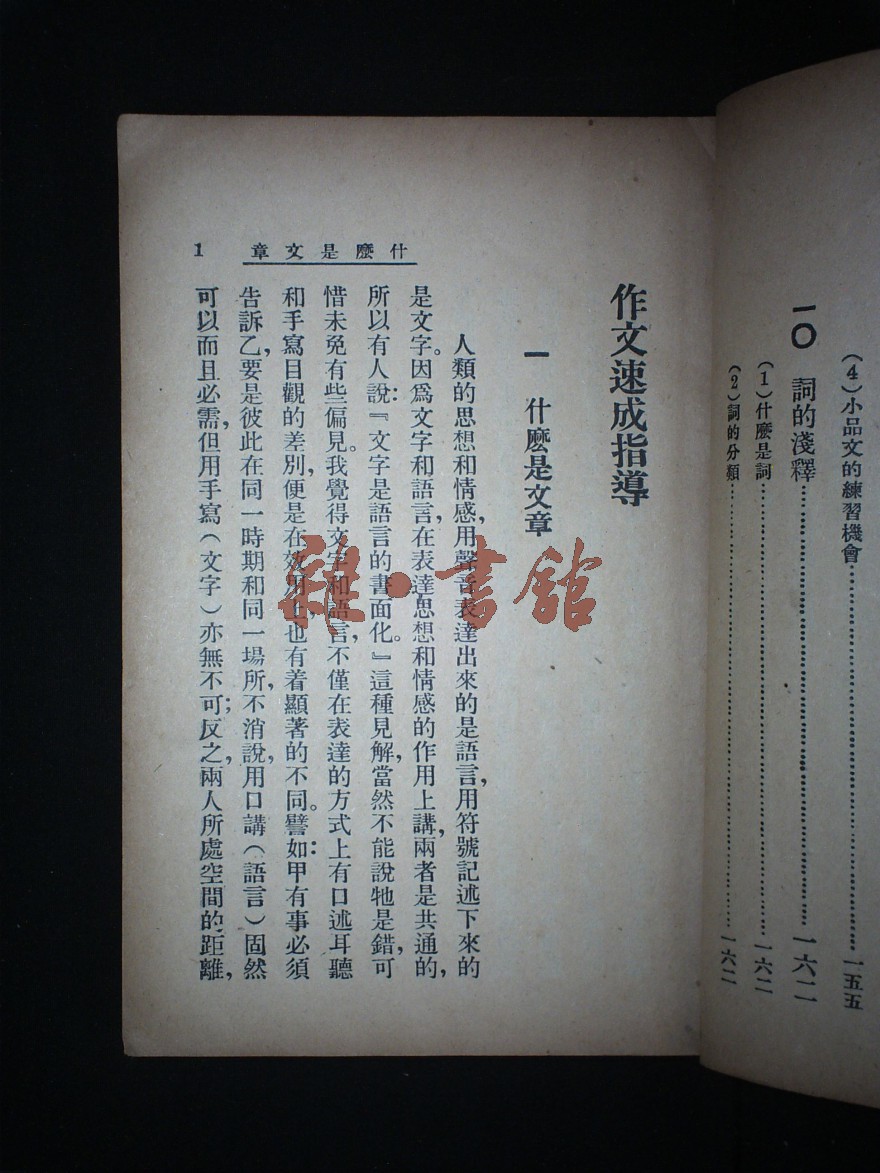 (4)小品文的練習機會……………………一五五
一〇　詞的淺釋……………………一六二
(1)什麼是詞……………………一六二
(2)詞的分類……………………一六二
什麼是文章
1
作文速成指導
一　什麼是文章
人類的思想和情感,用聲音表達出來的是語言,用符號記述下來的
是文字。因爲文字和語言,在表達思想和情感的作用上講,兩者是共通的,
所以有人說:『文字是語言的書面化。』這種見解,當然不能說牠是錯,可
惜未免有些偏見。我覺得文字和語言,不僅在表達的方式上有口述耳聽
和手寫目觀的差別,便是在效用上,也有着顯著的不同。譬如:甲有事必須
告訴乙,要是彼此在同一時期和同一場所,不消說,用口講(語言)固然
可以而且必需,但用手寫(文字)亦無不可;反之,兩人所處空間的距離,
雜·書館